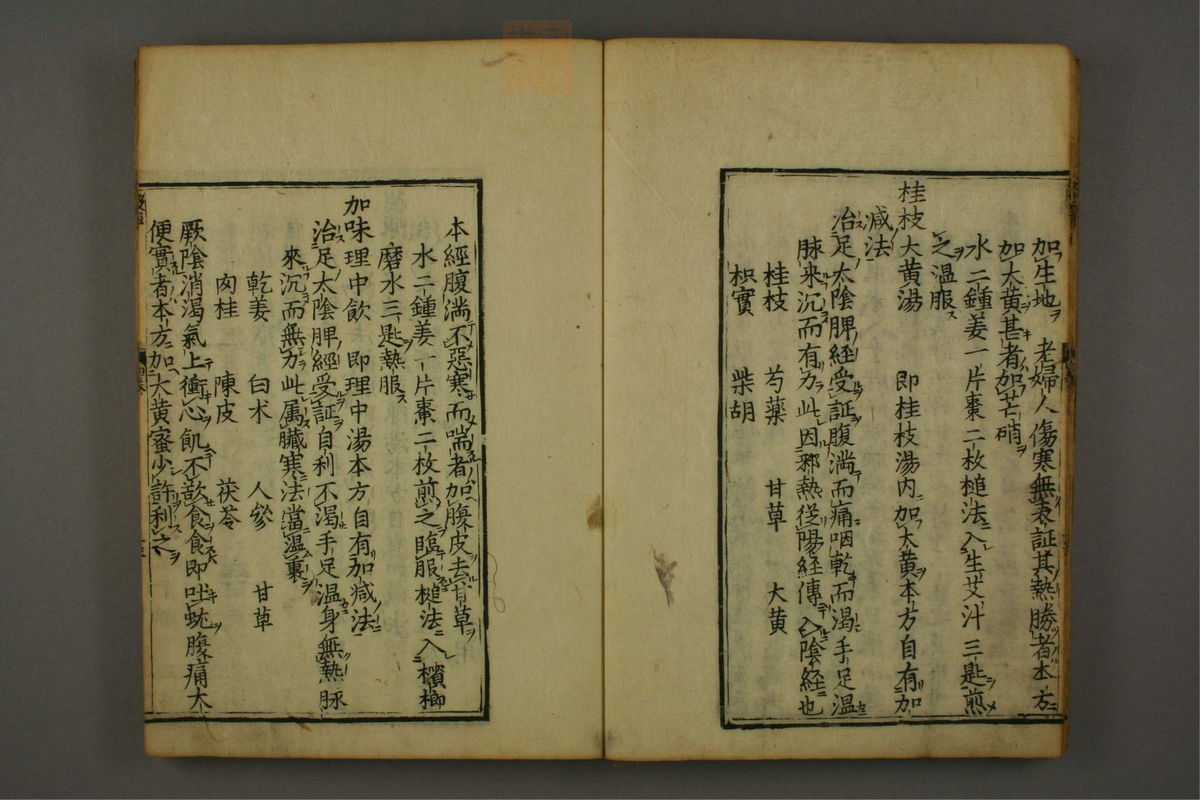 加生地　老婦人傷寒無表証其熱勝者本方
加大黄甚者加芒硝
水二鍾姜一片棗二枚槌法入生艾汁三匙煎
之温服
桂枝大黄湯　即桂枝湯内加大黄本方自有加
減法
治足太陰脾經受証腹満而痛咽乾而渇手足温
脉来沉而有力此因邪熱従陽経傳入陰経也
桂枝　芍藥　甘草　大黄
枳實　柴胡
本經腹満不惡寒而喘者加腹皮去甘草
水二鍾姜一片棗二枚煎之臨服槌法入檳榔
磨水三匙熱服
加味理中飲　即理中湯本方自有加减法
治足太陰脾經受証自利不渇手足温身無熱脉
來沉而無力此属臓寒法當温裏
乾姜　白术　人參　甘草
肉桂　陳皮　茯苓
厥陰消渇氣上衝心飢不欲食食即吐蚘腹痛大
便實者本方加大黄蜜少許利之